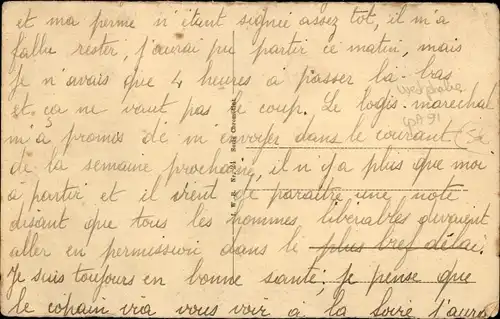 et ma perme n'étant signée assez tot, il m'a
fallu rester, j'aurai pu partir ce matin, mais
je n'avais que 4 heures a passer la-bas
et ça ne vaut pas le coup. Le logis-marechal
m'a promis de m'envoyer dans le courant
de la semaine prochaine, il n'y a plus que moi
à partir et il vient de paraitre une note
disant que tous les hommes libérables devaient
aller en permission dans le plus bref délai.
Je suis toujours en bonne santé; je pense que
le copain ira vous voir à la Loire j'aurai